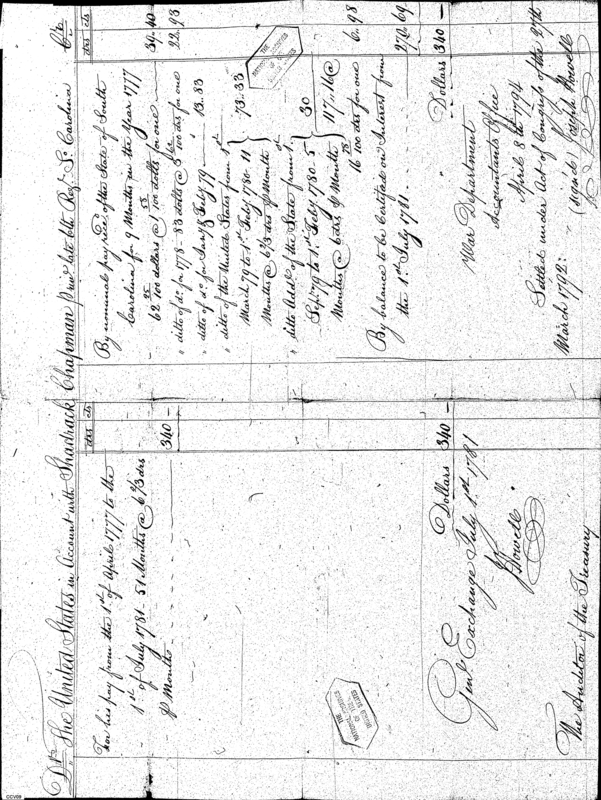 Dr. The United States in Account with Shadrack Chapman Priv. late 6th Regt. So. Carolina Cr.
drs cts
For his pay from the 1st of April 1777 to the
1st of July 1781 - 51 Months @ 6 2/3 drs
⅌ Month 340 -
Dollars 340 -
Genl. Exchange July 1st 1781
J Howell
The Auditor of the Treasury
drs cts
By nominal pay recd. of the State of South
Carolina for 9 Months in the Year 1777
62 100 dollars @ 1 100 dolls for one 39.40
" ditto of do. for 1778 - 83 dollars @ 100 drs for one 22.93
" ditto of do. for Jany & July 79 13.33
" ditto of the United States from 1st
March 79 to 1st July 1780 - 11
Months @ 6 2/3 drs ⅌ Month 73.33
" ditto of the State from 1st
Sepr. 79 to 1st July 1780 - 5
Months @ 6 drs ⅌ Month 30
117.16 @
16 100 drs for one 6.98
By balance to be Certified on Interest from
the 1st July 1781 270.69
Dollars 340 -
War Department
Accountants Office
April 8th 1794
Settled under Act of Congress of the 27th
March 1792:
(signed) Joseph Howell
THE ARCHIVES
NATIONAL
UNITED STATES
CCV69